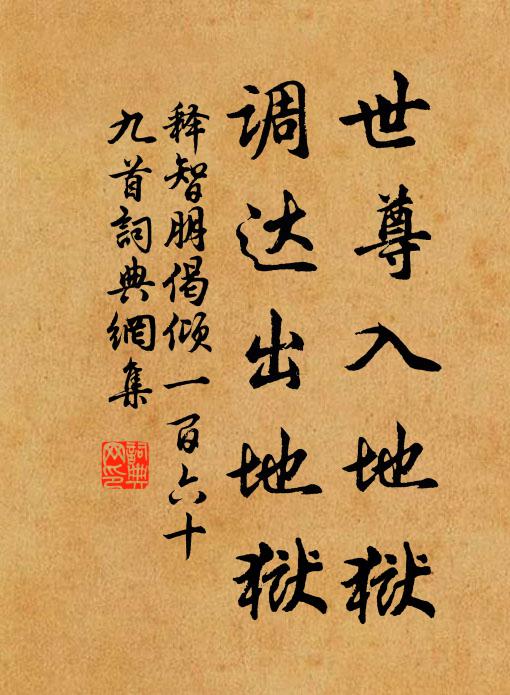 世尊入地狱
调达出地狱
释智朋偈倾一百六十
九首詞典網集
詞典